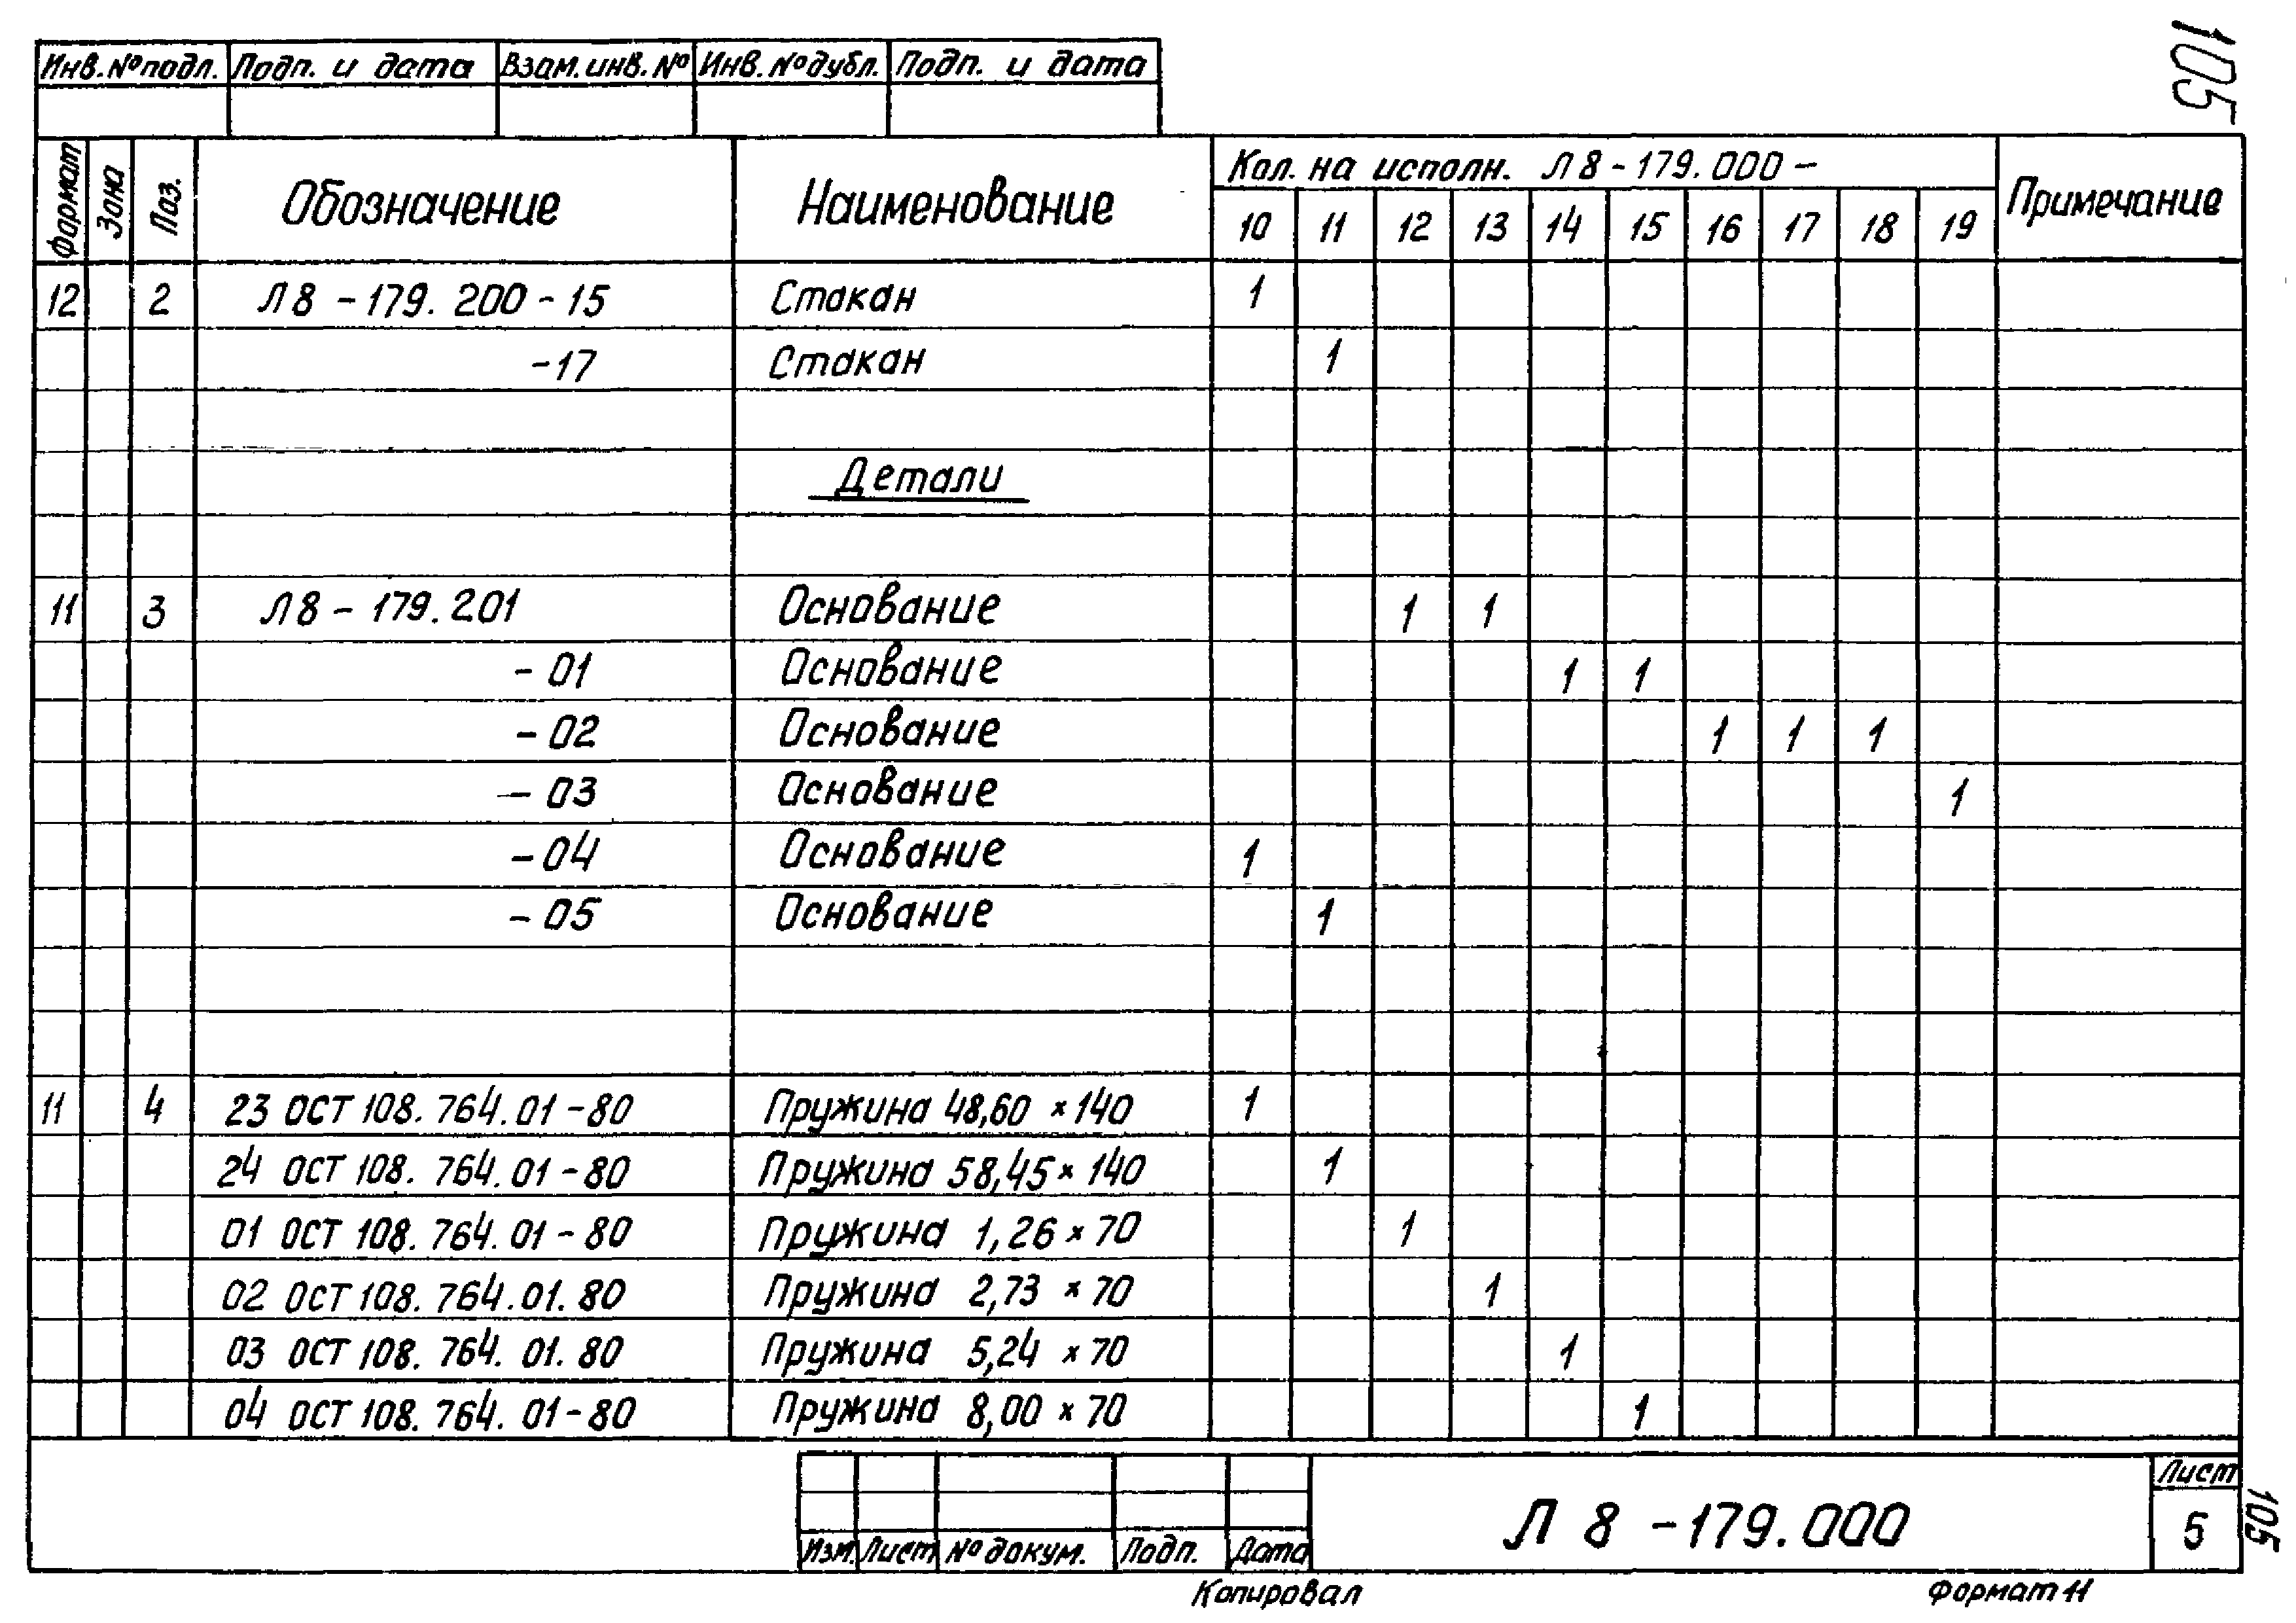 105
Инв.№подл. Подп. и дата Взам.инв.№ Инв.№дубл. Подп. и дата
Формат Зона Поз. Обозначение Наименование Кол. на исполн. Л8-179.000- Примечание
10 11 12 13 14 15 16 17 18 19
12 2 Л8-179.200-15 Стакан 1
-17 Стакан 1
Детали
11 3 Л8-179.201 Основание 1 1
-01 Основание 1 1
-02 Основание 1 1 1
-03 Основание 1
-04 Основание 1
-05 Основание 1
11 4 23 ОСТ 108.764.01-80 Пружина 48,60 × 140 1
24 ОСТ 108.764.01-80 Пружина 58,45 × 140 1
01 ОСТ 108.764.01-80 Пружина 1,26 × 70 1
02 ОСТ 108.764.01.80 Пружина 2,73 × 70 1
03 ОСТ 108.764.01.80 Пружина 5,24 × 70 1
04 ОСТ 108.764.01-80 Пружина 8,00 × 70 1
Изм. Лист № докум. Подп. Дата
Л8-179.000
Лист
5
105
Копировал Формат 11